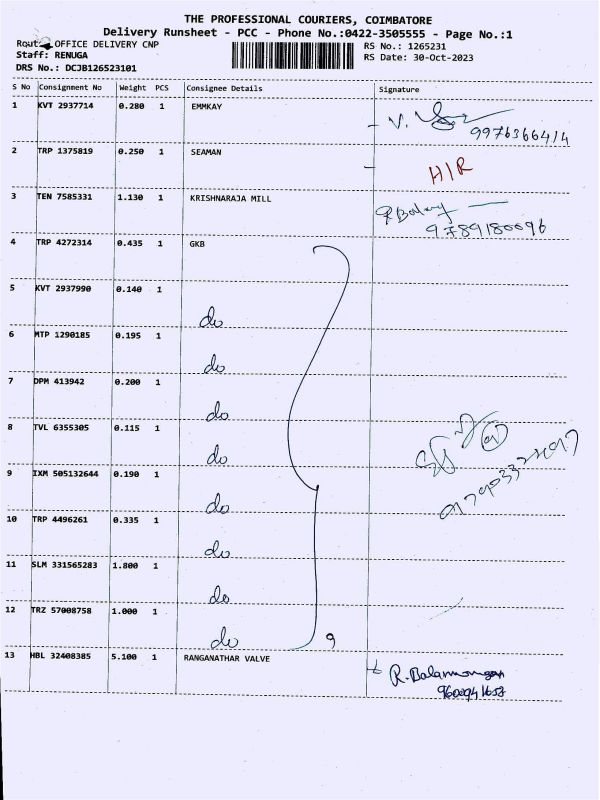 THE PROFESSIONAL COURIERS, COIMBATORE
Delivery Runsheet - PCC - Phone No.:0422-3505555 - Page No.:1
Route: OFFICE DELIVERY CNP
RS No.: 1265231
Staff: RENUGA
RS Date: 30-Oct-2023
DRS No.: DCJB126523101
S No Consignment No Weight PCS Consignee Details Signature
1 KVT 2937714 0.280 1 EMMKAY
9976366414
2 TRP 1375819 0.250 1 SEAMAN
H/R
3 TEN 7585331 1.130 1 KRISHNARAJA MILL
9789180096
4 TRP 4272314 0.435 1 GKB
5 KVT 2937990 0.140 1
do
6 MTP 1290185 0.195 1
do
7 DPM 413942 0.200 1
do
8 TVL 6355305 0.115 1
do
9 IXM 505132644 0.190 1
do
10 TRP 4496261 0.335 1
do
11 SLM 331565283 1.800 1
do
12 TRZ 57008758 1.000 1
do
9
13 HBL 32408385 5.100 1 RANGANATHAR VALVE
R. Balamurugan